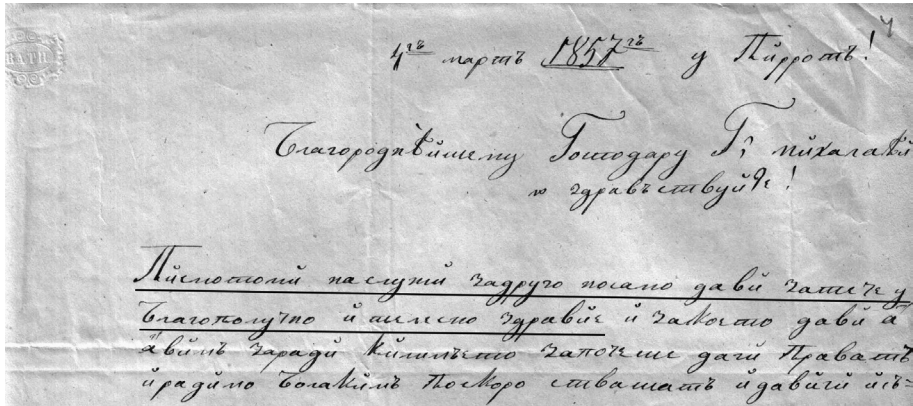 4гъ мартъ 1857гъ у Пирротъ!
Благороднѣйшему Господару Гⁿ михалакй
ю здравъствуйте!
Писмотомй наслужй задруго посано давй затече у
благополучно й телесно здравйе й закоето давй а
авймъ заради Килимъето започеше даги Праватъ
йрадимо Поскоро стватать йдавйгй йсъ=